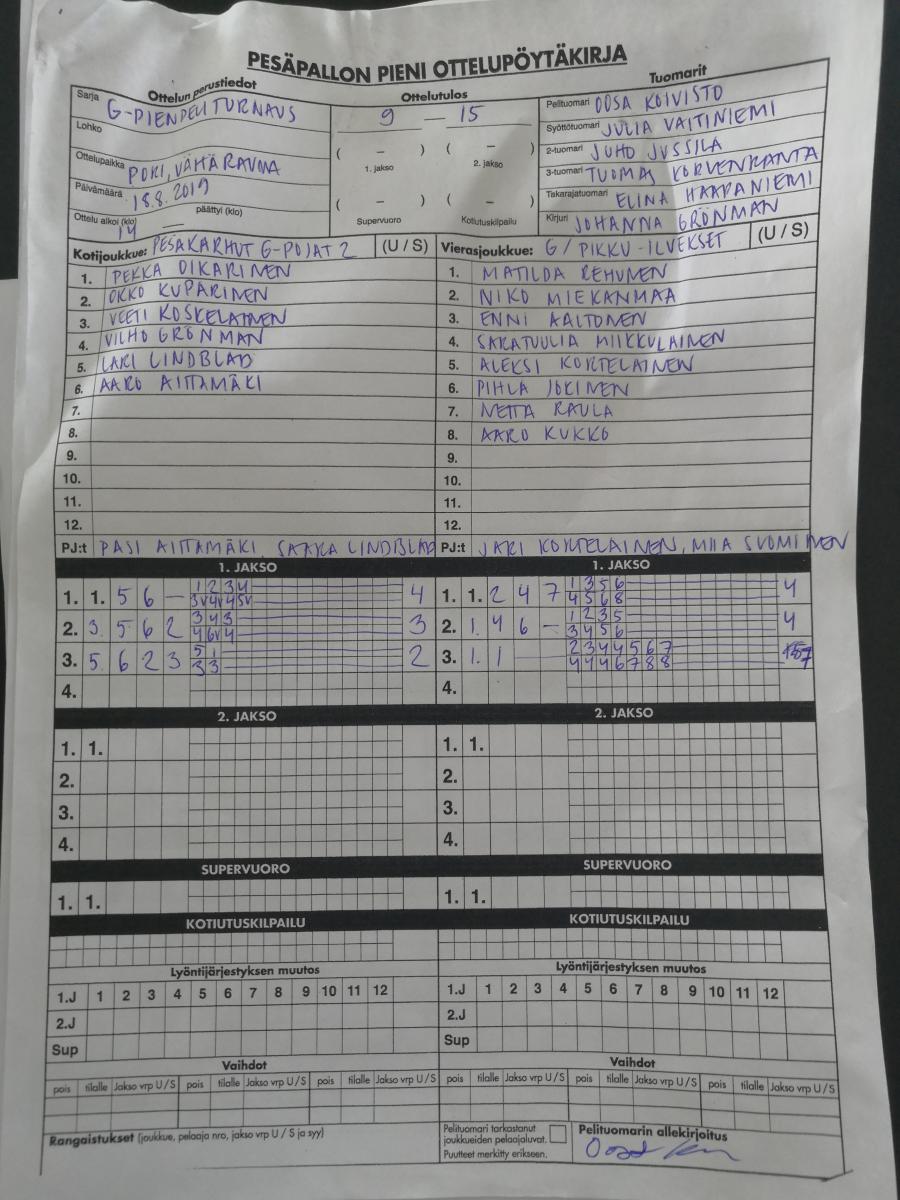 PESÄPALLON PIENI OTTELUPÖYTÄKIRJA
Ottelun perustiedot
Sarja G-PIENPELITURNAUS
Lohko
Ottelupaikka PORI, VÄHÄRAUMA
Päivämäärä 18.8.2019
Ottelu alkoi (klo) 14 päättyi (klo) —
Ottelutulos
9 — 15
( – ) ( – )
1. jakso 2. jakso
( – ) ( – )
Supervuoro Kotiutuskilpailu
Tuomarit
Pelituomari OOSA KOIVISTO
Syöttötuomari JULIA VAITINIEMI
2-tuomari JUHO JUSSILA
3-tuomari TUOMAS KORVENRANTA
Takarajatuomari ELINA HAAPANIEMI
Kirjuri JOHANNA GRÖNMAN
Kotijoukkue: PESÄKARHUT G-POJAT 2 (U / S)
1. PEKKA OIKARINEN
2. OKKO KUPARINEN
3. VEETI KOSKELAINEN
4. VILHO GRÖNMAN
5. LARI LINDBLAD
6. AARO AITTAMÄKI
7.
8.
9.
10.
11.
12.
PJ:t PASI AITTAMÄKI, LINDBLAD
Vierasjoukkue: G/PIKKU-ILVEKSET (U / S)
1. MATILDA REHUNEN
2. NIKO MIEKANMAA
3. ENNI AALTONEN
4. SARATUULIA MIKKULAINEN
5. ALEKSI KORTELAINEN
6. PIHLA JOKINEN
7. NETTA RAULA
8. AARO KUKKO
9.
10.
11.
12.
PJ:t JARI KORTELAINEN, MIIA SUOMINEN
1. JAKSO
1. 1. 5 6 — 1 2 3 4 4
3V 4V 4 5V
2. 3. 5 6 2 3 4 3 3
4 6V 4
3. 5 6 2 3 5 1 2
3 3
4.
1. JAKSO
1. 1. 2 4 7 1 3 5 6 4
4 5 6 8
2. 1. 4 6 — 1 2 3 5 4
3 4 5 6
3. 1. 1 2 3 4 4 5 6 7 7
4 4 4 6 7 8 8
4.
2. JAKSO
1. 1.
2.
3.
4.
2. JAKSO
1. 1.
2.
3.
4.
SUPERVUORO
1. 1.
SUPERVUORO
1. 1.
KOTIUTUSKILPAILU
KOTIUTUSKILPAILU
Lyöntijärjestyksen muutos
1.J 1 2 3 4 5 6 7 8 9 10 11 12
2.J
Sup
Lyöntijärjestyksen muutos
1.J 1 2 3 4 5 6 7 8 9 10 11 12
2.J
Sup
Vaihdot
pois tilalle Jakso vrp U / S pois tilalle Jakso vrp U / S pois tilalle Jakso vrp U / S
Vaihdot
pois tilalle Jakso vrp U / S pois tilalle Jakso vrp U / S pois tilalle Jakso vrp U / S
Rangaistukset (joukkue, pelaaja nro, jakso vrp U / S ja syy)
Pelituomari tarkastanut
joukkueiden pelaajaluvat.
Puutteet merkitty erikseen.
Pelituomarin allekirjoitus